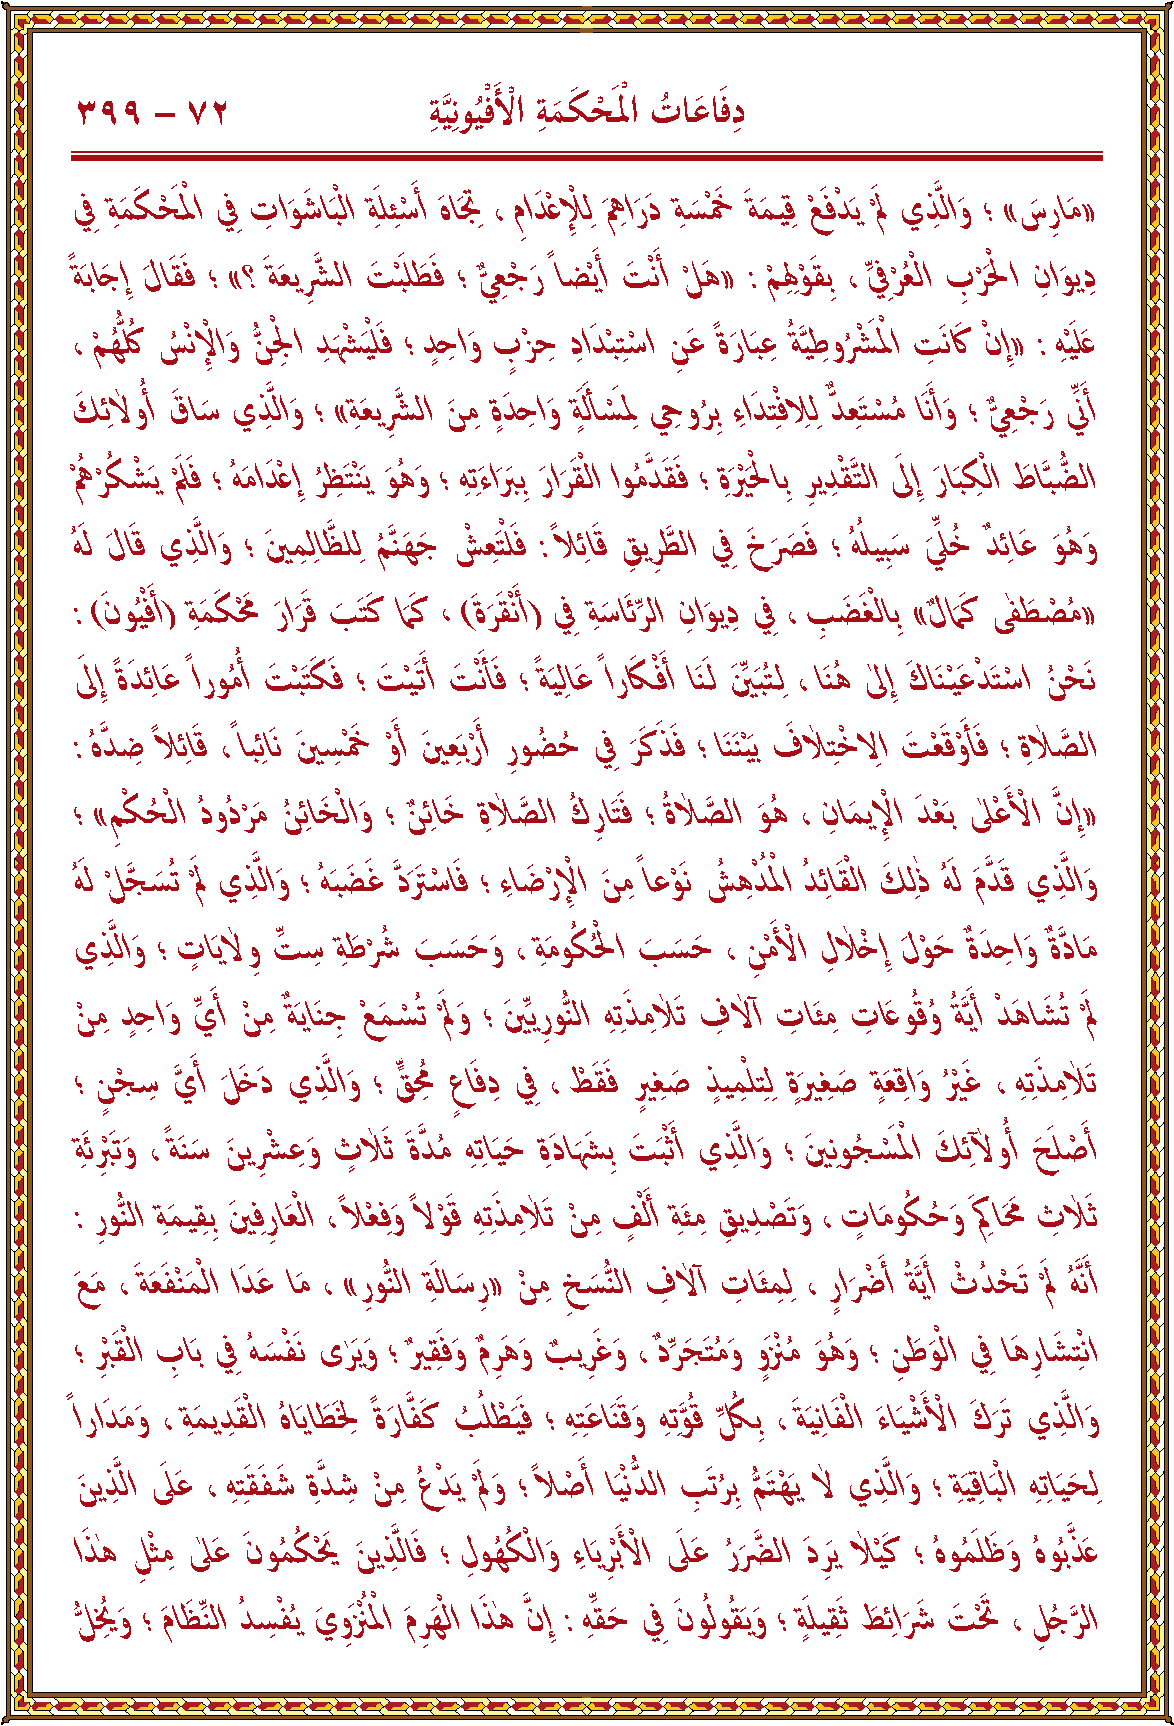 دِفَاعَاتُ الْمَحْكَمَةِ الْأَفْيُونِيَّةِ ٧٢ – ٣٩٩
«مَارِسَ» ؛ وَالَّذِي لَمْ يَدْفَعْ قِيمَةَ خَمْسَةِ دَرَاهِمَ لِلْإِعْدَامِ ، تِجَاهَ أَسْئِلَةِ الْبَاشَوَاتِ فِي الْمَحْكَمَةِ فِي
دِيوَانِ الْحَرْبِ الْعُرْفِيِّ ، بِقَوْلِهِمْ : «هَلْ أَنْتَ أَيْضاً رَجْعِيٌّ ؛ فَطَلَبْتَ الشَّرِيعَةَ ؟» ؛ فَقَالَ إِجَابَةً
عَلَيْهِ : «إِنْ كَانَتِ الْمَشْرُوطِيَّةُ عِبَارَةً عَنِ اسْتِبْدَادِ حِزْبٍ وَاحِدٍ ؛ فَلْيَشْهَدِ الْجِنُّ وَالْإِنْسُ كُلُّهُمْ ،
أَنِّي رَجْعِيٌّ ؛ وَأَنَا مُسْتَعِدٌّ لِلِافْتِدَاءِ بِرُوحِي لِمَسْأَلَةٍ وَاحِدَةٍ مِنَ الشَّرِيعَةِ» ؛ وَالَّذِي سَاقَ أُولٰئِكَ
الضُّبَّاطَ الْكِبَارَ إِلَى التَّقْدِيرِ بِالْحَيْرَةِ ؛ فَقَدَّمُوا الْقَرَارَ بِبَرَاءَتِهِ ؛ وَهُوَ يَنْتَظِرُ إِعْدَامَهُ ؛ فَلَمْ يَشْكُرْهُمْ
وَهُوَ عَائِدٌ خُلِّيَ سَبِيلُهُ ؛ فَصَرَخَ فِي الطَّرِيقِ قَائِلاً : فَلْتَعِشْ جَهَنَّمُ لِلظَّالِمِينَ ؛ وَالَّذِي قَالَ لَهُ
«مُصْطَفٰى كَمَالٌ» بِالْغَضَبِ ، فِي دِيوَانِ الرِّئَاسَةِ فِي (أَنْقَرَةَ) ، كَمَا كَتَبَ قَرَارَ مَحْكَمَةِ (أَفْيُونَ) :
نَحْنُ اسْتَدْعَيْنَاكَ إِلٰى هُنَا ، لِتُبَيِّنَ لَنَا أَفْكَاراً عَالِيَةً ؛ فَأَنْتَ أَتَيْتَ ؛ فَكَتَبْتَ أُمُوراً عَائِدَةً إِلَى
الصَّلَاةِ ؛ فَأَوْقَعْتَ الِاخْتِلَافَ بَيْنَنَا ؛ فَذَكَرَ فِي حُضُورِ أَرْبَعِينَ أَوْ خَمْسِينَ نَائِباً ، قَائِلاً ضِدَّهُ :
«إِنَّ الْأَعْلٰى بَعْدَ الْإِيمَانِ ، هُوَ الصَّلَاةُ ؛ فَتَارِكُ الصَّلَاةِ خَائِنٌ ؛ وَالْخَائِنُ مَرْدُودُ الْحُكْمِ» ؛
وَالَّذِي قَدَّمَ لَهُ ذٰلِكَ الْقَائِدُ الْمُدْهِشُ نَوْعاً مِنَ الْإِرْضَاءِ ؛ فَاسْتَرَدَّ غَضَبَهُ ؛ وَالَّذِي لَمْ تُسَجَّلْ لَهُ
مَادَّةٌ وَاحِدَةٌ حَوْلَ إِخْلَالِ الْأَمْنِ ، حَسَبَ الْحُكُومَةِ ، وَحَسَبَ شُرْطَةِ سِتِّ وِلَايَاتٍ ؛ وَالَّذِي
لَمْ تُشَاهَدْ أَيَّةُ وُقُوعَاتِ مِئَاتِ آلَافِ تَلَامِذَتِهِ النُّورِيِّينَ ؛ وَلَمْ تُسْمَعْ جِنَايَةٌ مِنْ أَيِّ وَاحِدٍ مِنْ
تَلَامِذَتِهِ ، غَيْرُ وَاقِعَةٍ صَغِيرَةٍ لِتِلْمِيذٍ صَغِيرٍ فَقَطْ ، فِي دِفَاعٍ مُحِقٍّ ؛ وَالَّذِي دَخَلَ أَيَّ سِجْنٍ ؛
أَصْلَحَ أُولٰئِكَ الْمَسْجُونِينَ ؛ وَالَّذِي أَثْبَتَ بِشَهَادَةِ حَيَاتِهِ مُدَّةَ ثَلَاثٍ وَعِشْرِينَ سَنَةً ، وَتَبْرِئَةِ
ثَلَاثِ مَحَاكِمَ وَحُكُومَاتٍ ، وَتَصْدِيقِ مِئَةِ أَلْفٍ مِنْ تَلَامِذَتِهِ قَوْلاً وَفِعْلاً ، الْعَارِفِينَ بِقِيمَةِ النُّورِ :
أَنَّهُ لَمْ تَحْدُثْ أَيَّةُ أَضْرَارٍ ، لِمِئَاتِ آلَافِ النُّسَخِ مِنْ «رِسَالَةِ النُّورِ» ، مَا عَدَا الْمَنْفَعَةَ ، مَعَ
انْتِشَارِهَا فِي الْوَطَنِ ؛ وَهُوَ مُنْزَوٍ وَمُتَجَرِّدٌ ، وَغَرِيبٌ وَهَرِمٌ وَفَقِيرٌ ؛ وَيَرٰى نَفْسَهُ فِي بَابِ الْقَبْرِ ؛
وَالَّذِي تَرَكَ الْأَشْيَاءَ الْفَانِيَةَ ، بِكُلِّ قُوَّتِهِ وَقَنَاعَتِهِ ؛ فَيَطْلُبُ كَفَّارَةً لِخَطَايَاهُ الْقَدِيمَةِ ، وَمَدَاراً
لِحَيَاتِهِ الْبَاقِيَةِ ؛ وَالَّذِي لَا يَهْتَمُّ بِرُتَبِ الدُّنْيَا أَصْلاً ؛ وَلَمْ يَدْعُ مِنْ شِدَّةِ شَفَقَتِهِ ، عَلَى الَّذِينَ
عَذَّبُوهُ وَظَلَمُوهُ ؛ كَيْلَا يَرِدَ الضَّرَرُ عَلَى الْأَبْرِيَاءِ وَالْكُهُولِ ؛ فَالَّذِينَ يَحْكُمُونَ عَلٰى مِثْلِ هٰذَا
الرَّجُلِ ، تَحْتَ شَرَائِطَ ثَقِيلَةٍ ؛ وَيَقُولُونَ فِي حَقِّهِ : إِنَّ هٰذَا الْهَرِمَ الْمُنْزَوِيَ يُفْسِدُ النِّظَامَ ؛ وَيُخِلُّ